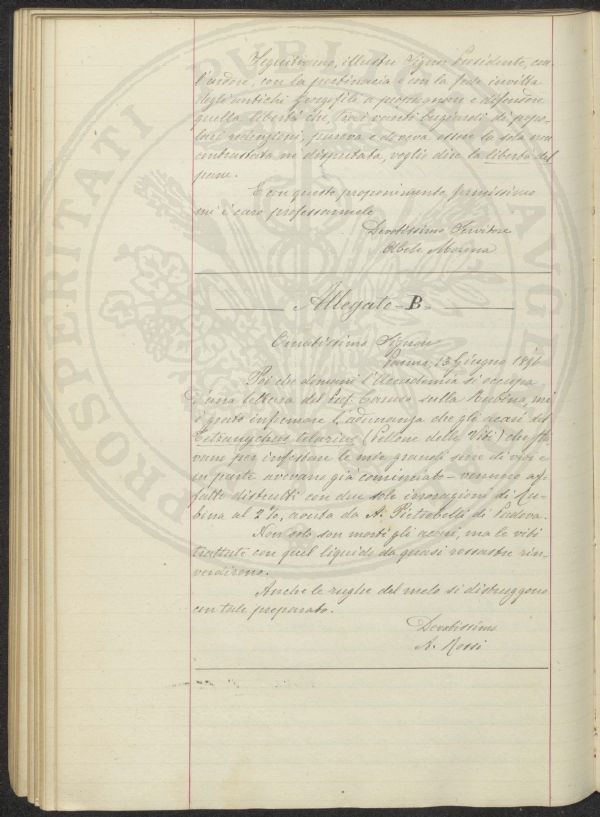 Seguitiamo, illustre Signor Presidente, con
l'ardore, con la pertinacia e con la fede invitta
degli antichi Georgofili a propugnare e difendere
quella libertà che, fra i vanti bugiardi di popo-
lari redenzioni, pareva e doveva essere la sola non
contrastata nè disputata, voglio dire la libertà del
pane.
E con questo proponimento fermissimo
mi è caro professarmele
Devotissimo Servitore
Abele Morena
Allegato B
Onoratissimo Signore
13 Giugno 1896
Poi che domani l'Accademia si occupa
d'una lettera del Prof. Caruso sulla Rubina, mi
è grato informare l'adunanza che gli acari del
Tetranychus telarius (Pellone delle Viti) che sta
vano per infestare le mie grandi serre di viti e
in parte avevano già cominciato - vennero af-
fatto distrutti con due sole irrorazioni di Ru-
bina al 2%, avuta da A. Pietrobelli di Padova.
Non solo son morti gli acari, ma le viti
trattate con quel liquido da quasi rossastre rin-
verdirono.
Anche le rughe del melo si distruggono
con tale preparato.
Devotissimo
A. Rossi
PROSPERITATI PUBLICAE AUGE